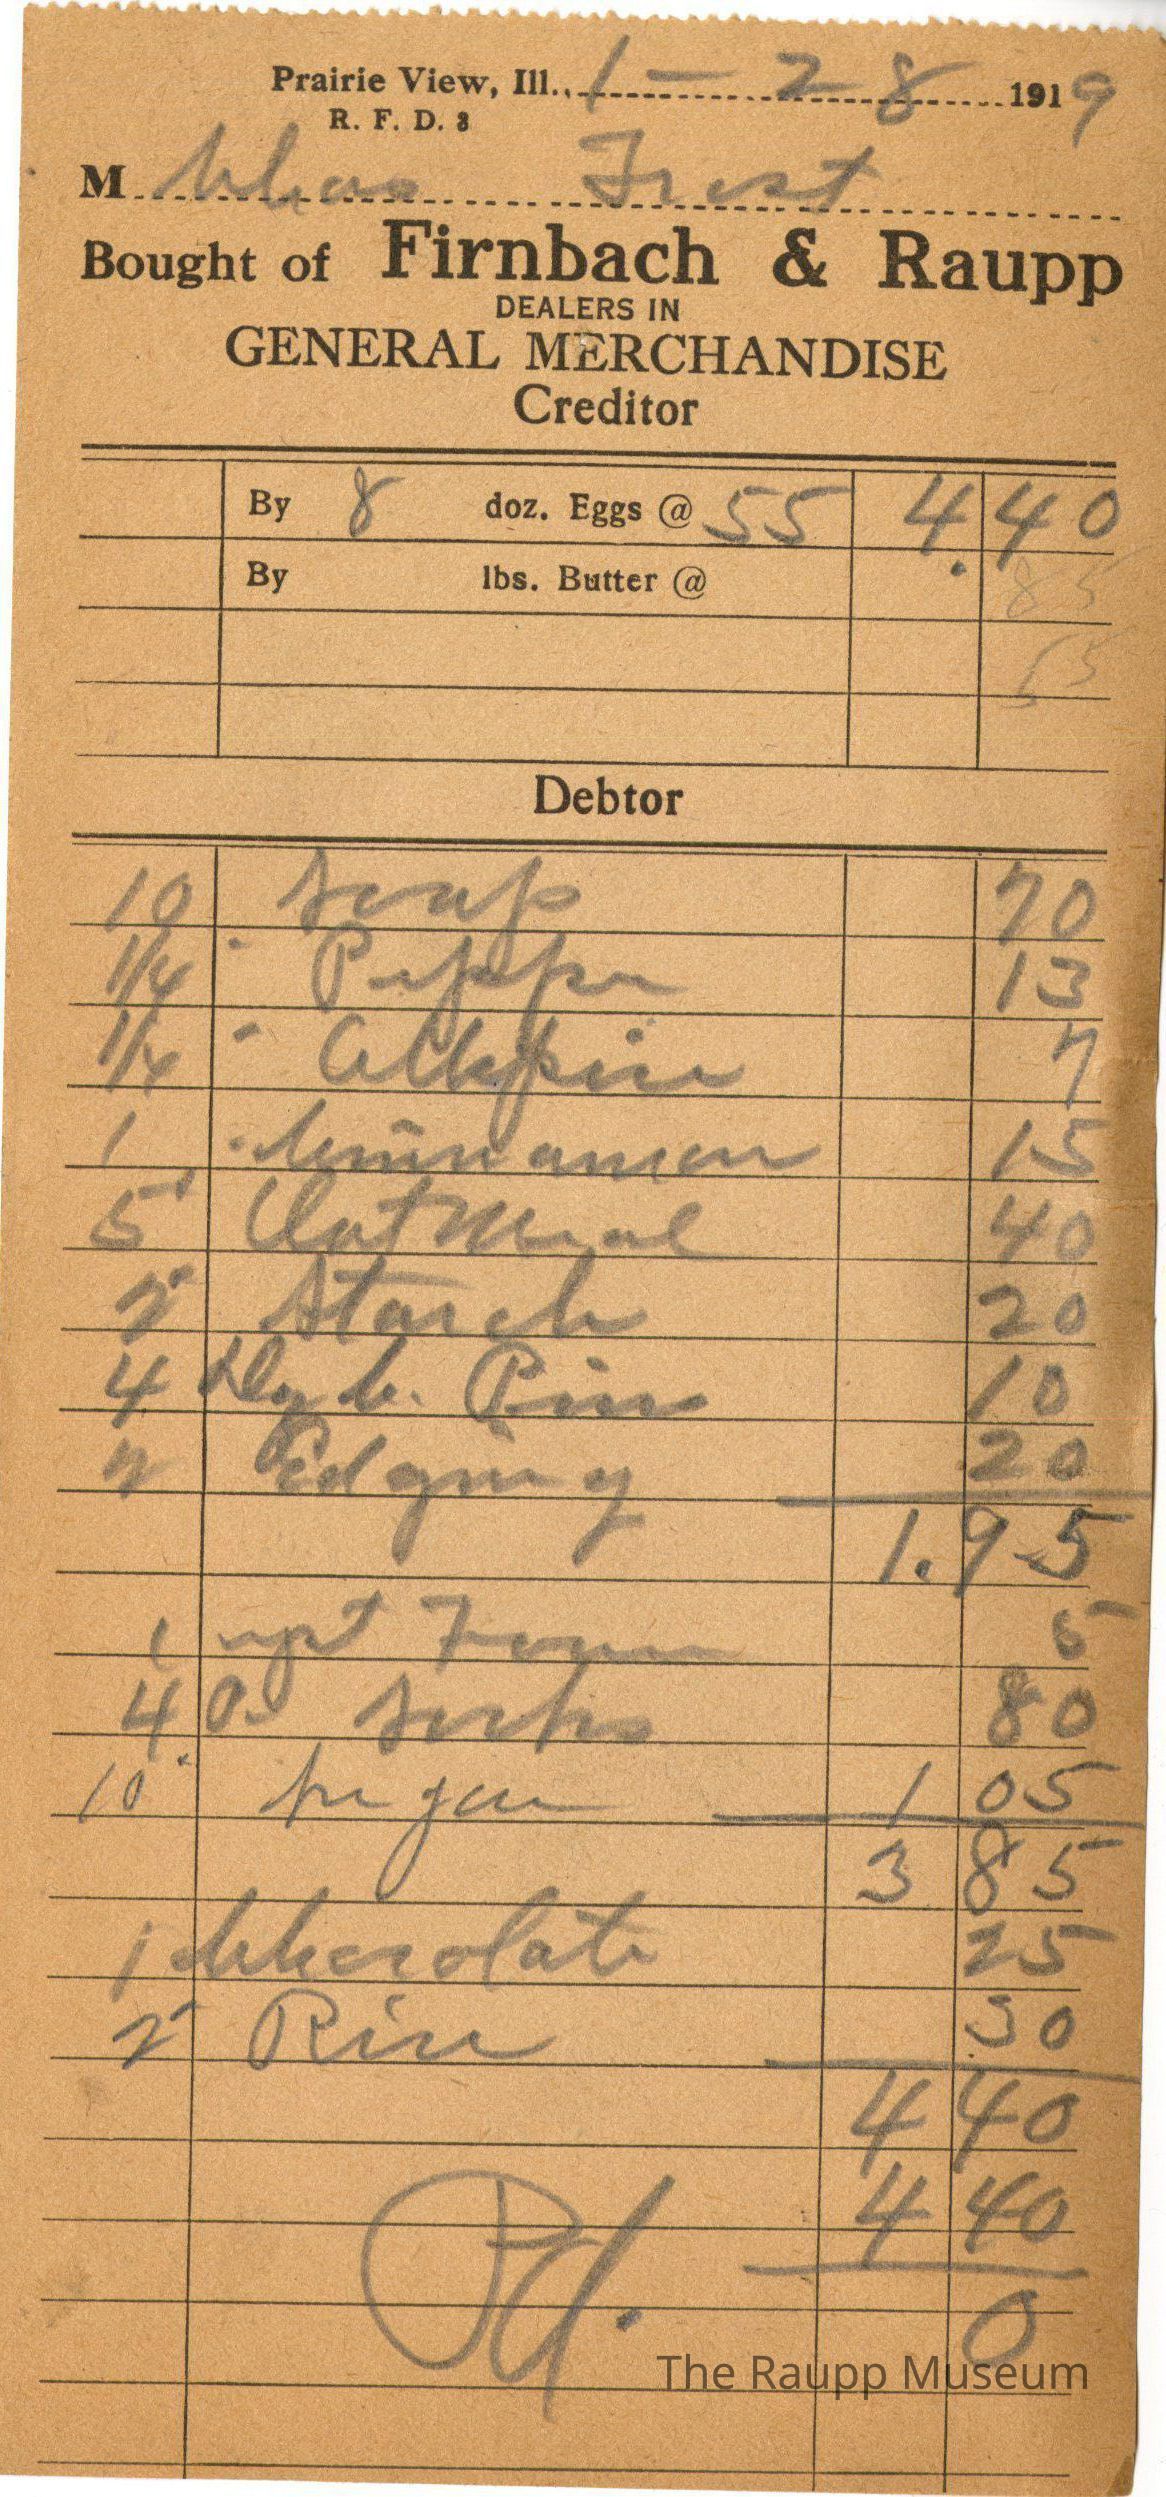 Prairie View, Ill., 1-28 1919
R. F. D. 3
M Chas Frest
Bought of Firnbach & Raupp
DEALERS IN
GENERAL MERCHANDISE
Creditor
By 8 doz. Eggs @ 55 4.40
By lbs. Butter @ 85
55
Debtor
10 Soap 70
1/4 " Pepper 13
1/4 " Allspice 7
1 " Cinnamon 15
5" Oat Meal 40
2" Starch 20
4 Dz C. Pins 10
2 Edging 20
1.95
1 Foam 5
4 Socks 80
10" 1 05
3 85
1 Chocolate 25
2" Rice 30
4 40
4 40
Pd. 0
The Raupp Museum